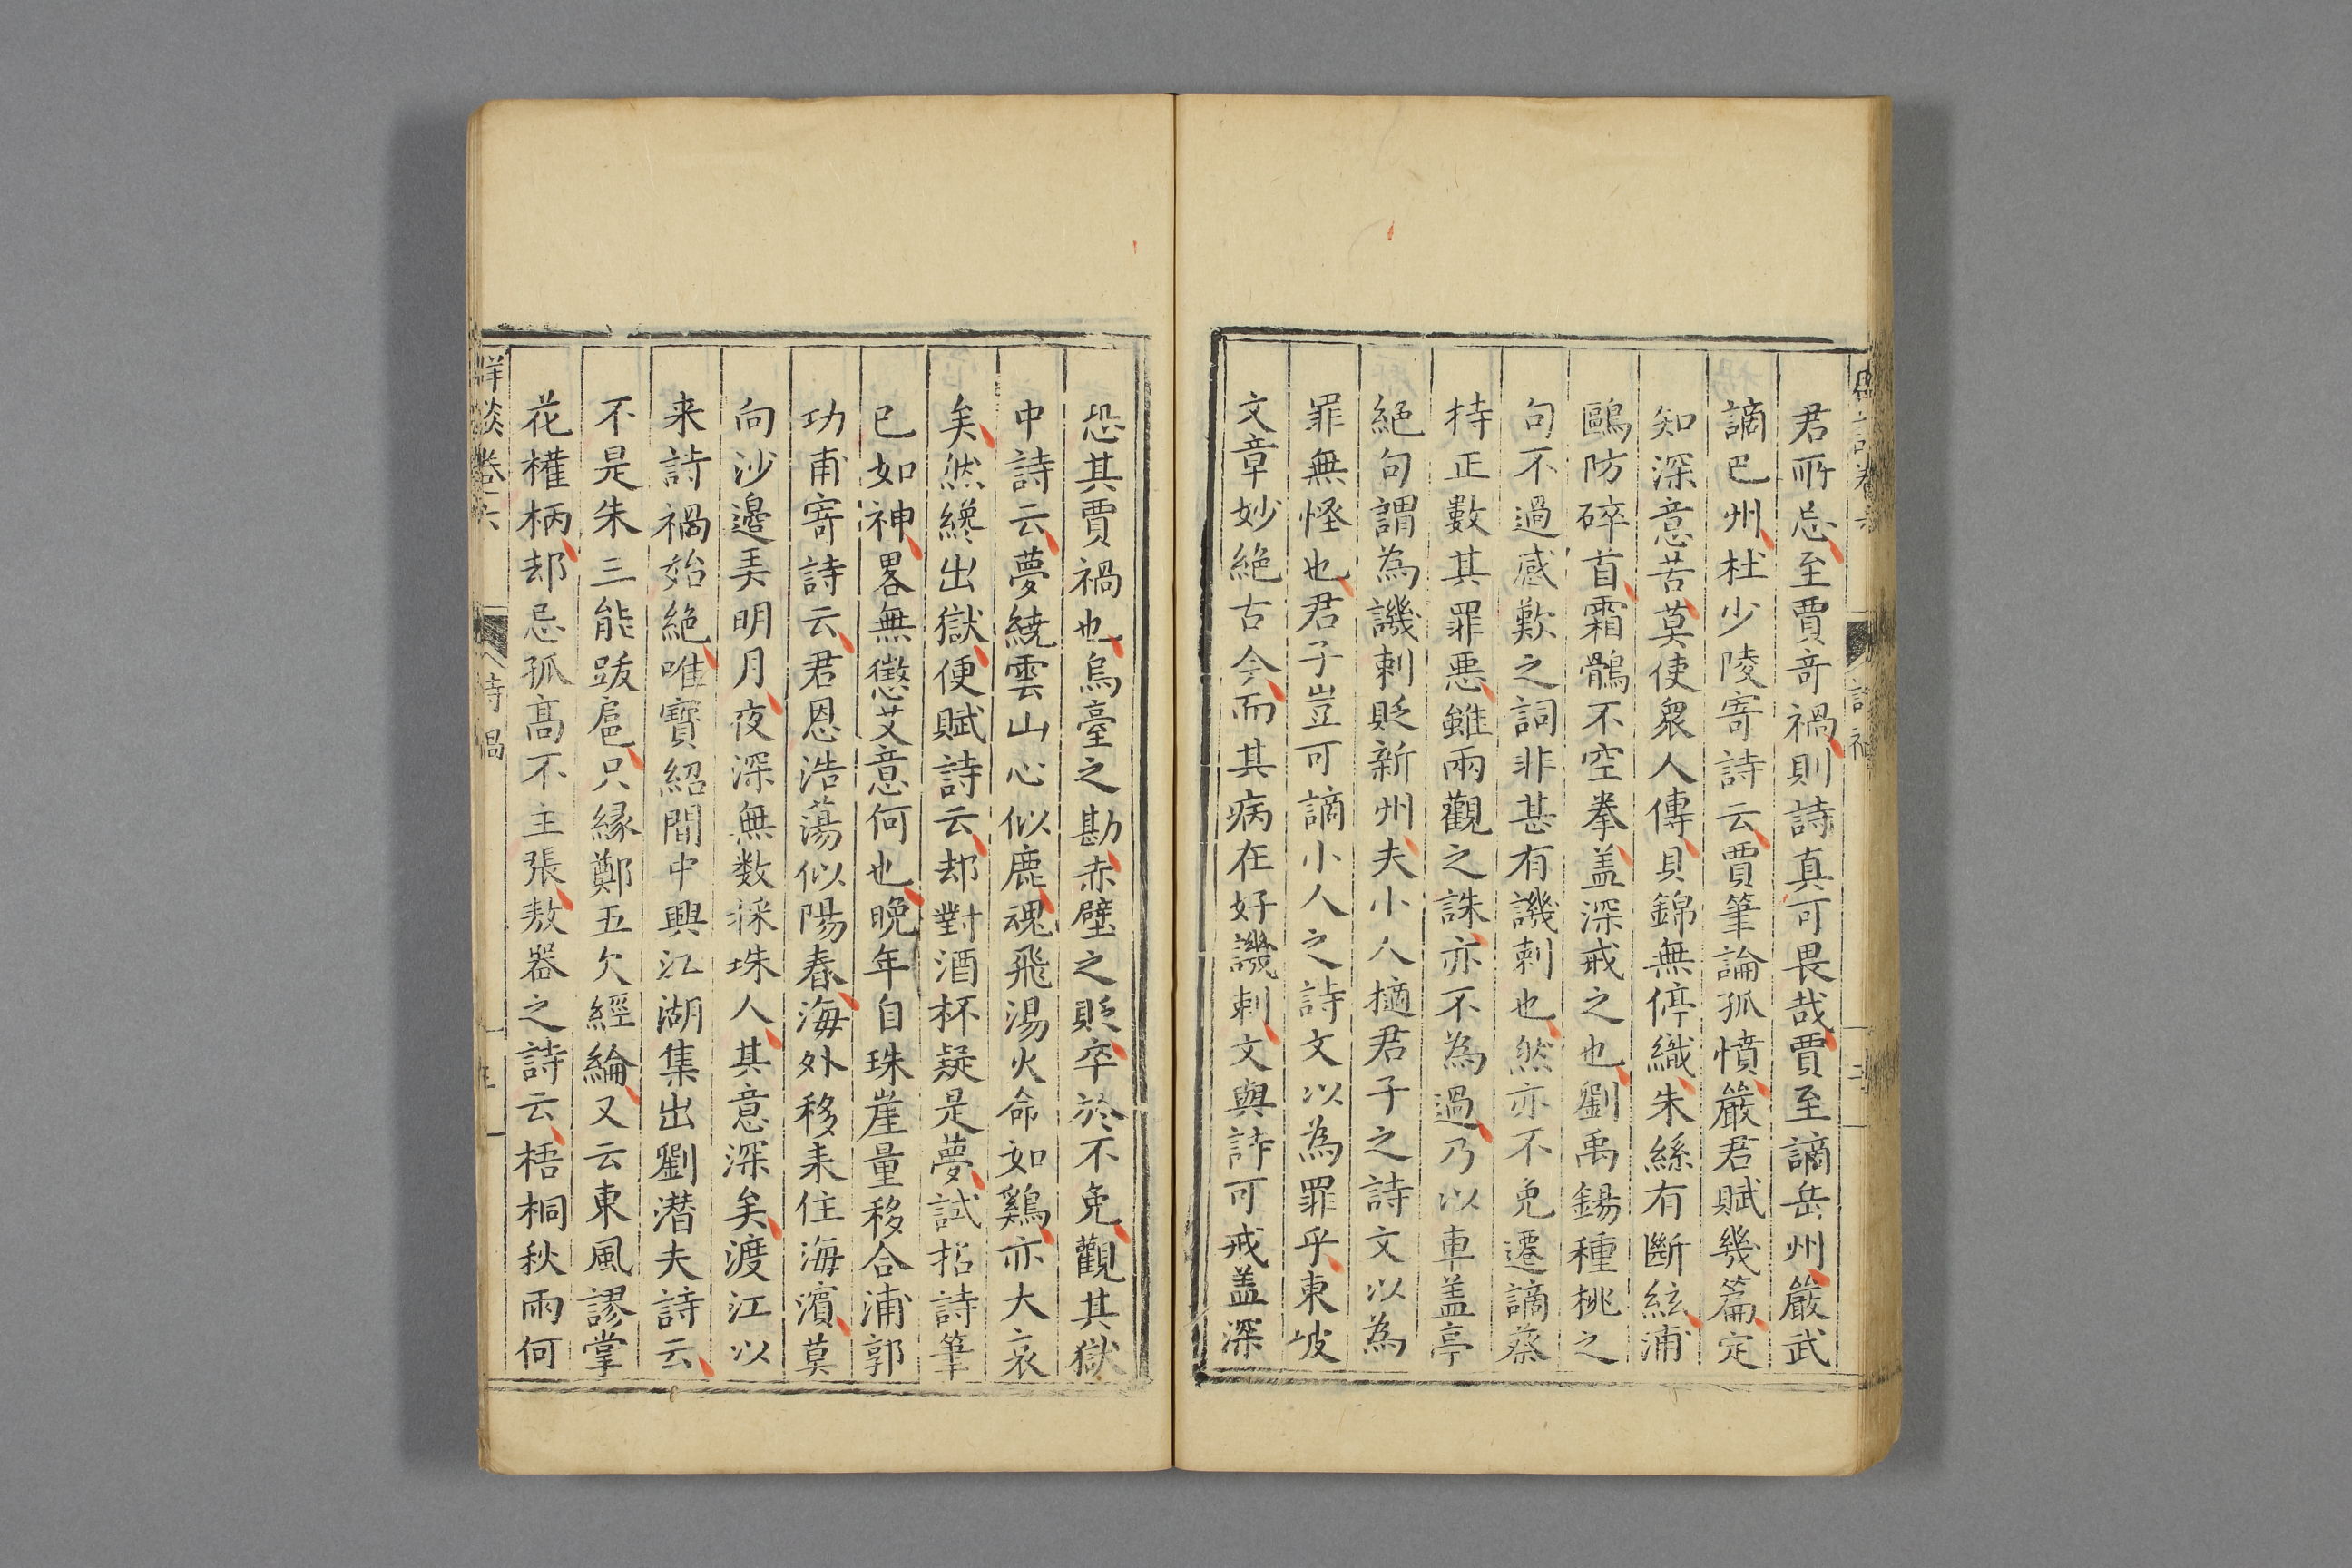 君所忌至賈奇禍則詩真可畏哉賈至謫岳州嚴武
謫巴州杜少陵寄詩云賈筆論孤憤嚴君賦幾篇定
知深意苦莫使衆人傳貝錦無停織朱絲有斷絃浦
鷗防碎首霜鶻不空拳盖深戒之也劉禹錫種桃之
句不過感歎之詞非甚有譏刺也然亦不免遷謫蔡
持正數其罪惡雖兩觀之誅亦不為過乃以車盖亭
絕句謂為譏刺貶新州夫小人擿君子之詩文以為
罪無怪也君子豈可謫小人之詩文以為罪乎東坡
文章妙絕古今而其病在好譏刺文與許可戒盖深
恐其賈禍也烏臺之勘赤壁之貶卒於不免觀其獄
中詩云夢繞雲山心似鹿魂飛湯火命如鷄亦大哀
矣然纔出獄便賦詩云却對酒杯疑是夢試拈詩筆
已如神畧無懲艾意何也晚年自珠崖量移合浦郭
功甫寄詩云君恩浩蕩似陽春海外移来住海濱莫
向沙邉弄明月夜深無数採珠人其意深矣渡江以
来詩禍始絕唯寶紹間中興江湖集出劉潜夫詩云
不是朱三能跋扈只緣鄭五欠經綸又云東風謬掌
花權柄却忌孤髙不主張敖器之詩云梧桐秋雨何
詳談卷六
詩禍